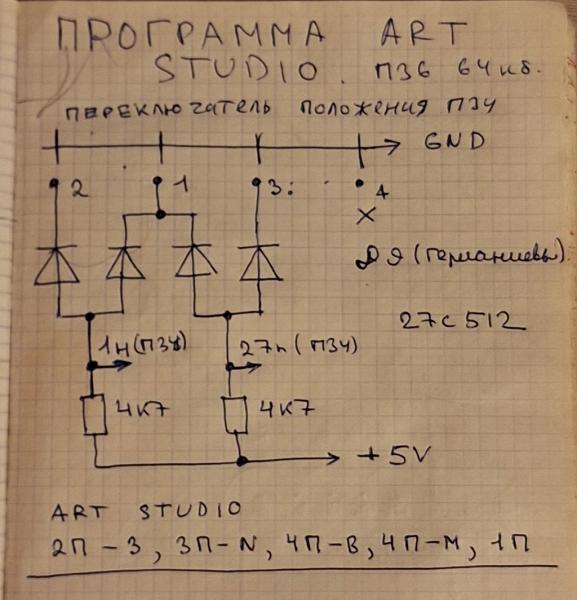 ПРОГРАММА ART
STUDIO. ПЗ6 64кб.
ПЕРЕКЛЮЧАТЕЛЬ ПОЛОЖЕНИЯ ПЗУ
GND
2 1 3: 4
Д9 (германиевы).
27C512
1н(ПЗУ) 27н(ПЗУ)
4К7 4К7
+5V
ART STUDIO
2П-3, 3П-N, 4П-В, 4П-М, 1П